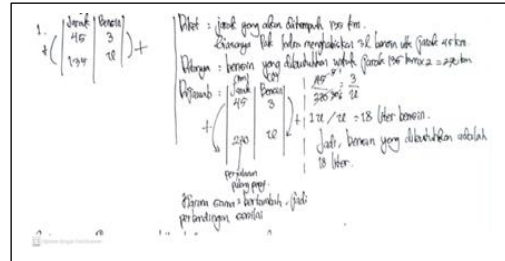 1. Jarak Bensin
45 3
135 u
+ +
Diket : jarak yang akan ditempuh 135 km.
Biasanya Pak Indra menghabiskan 3L bensin utk jarak 45 km.
Ditanya : bensin yang dibutuhkan untuk jarak 135 km x 2 = 270 km
Dijawab : Jarak Bensin
45 3
270 u
+ +
perjalanan
pulang pergi.
45 = 3
270 u
= 18 liter bensin.
Jadi, bensin yang dibutuhkan adalah
18 liter.
Karena sama² bertambah, jadi
perbandingan senilai